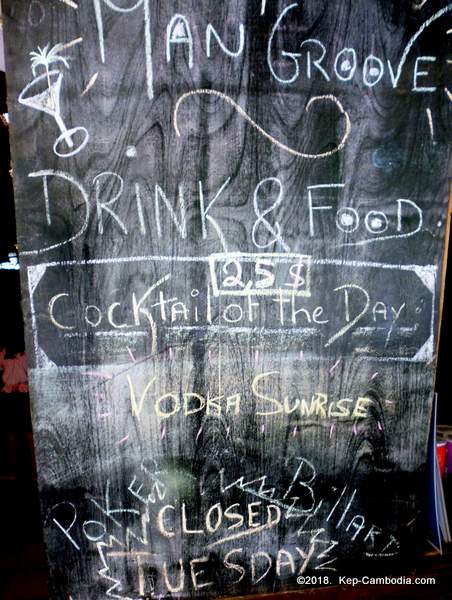 MAN' GROOVE
DRINK & FOOD
2,5 $
COCKTAIL OF THE DAY
VODKA SUNRISE
POKER
BILLARD
CLOSED
TUESDAY
©2018. Kep-Cambodia.com